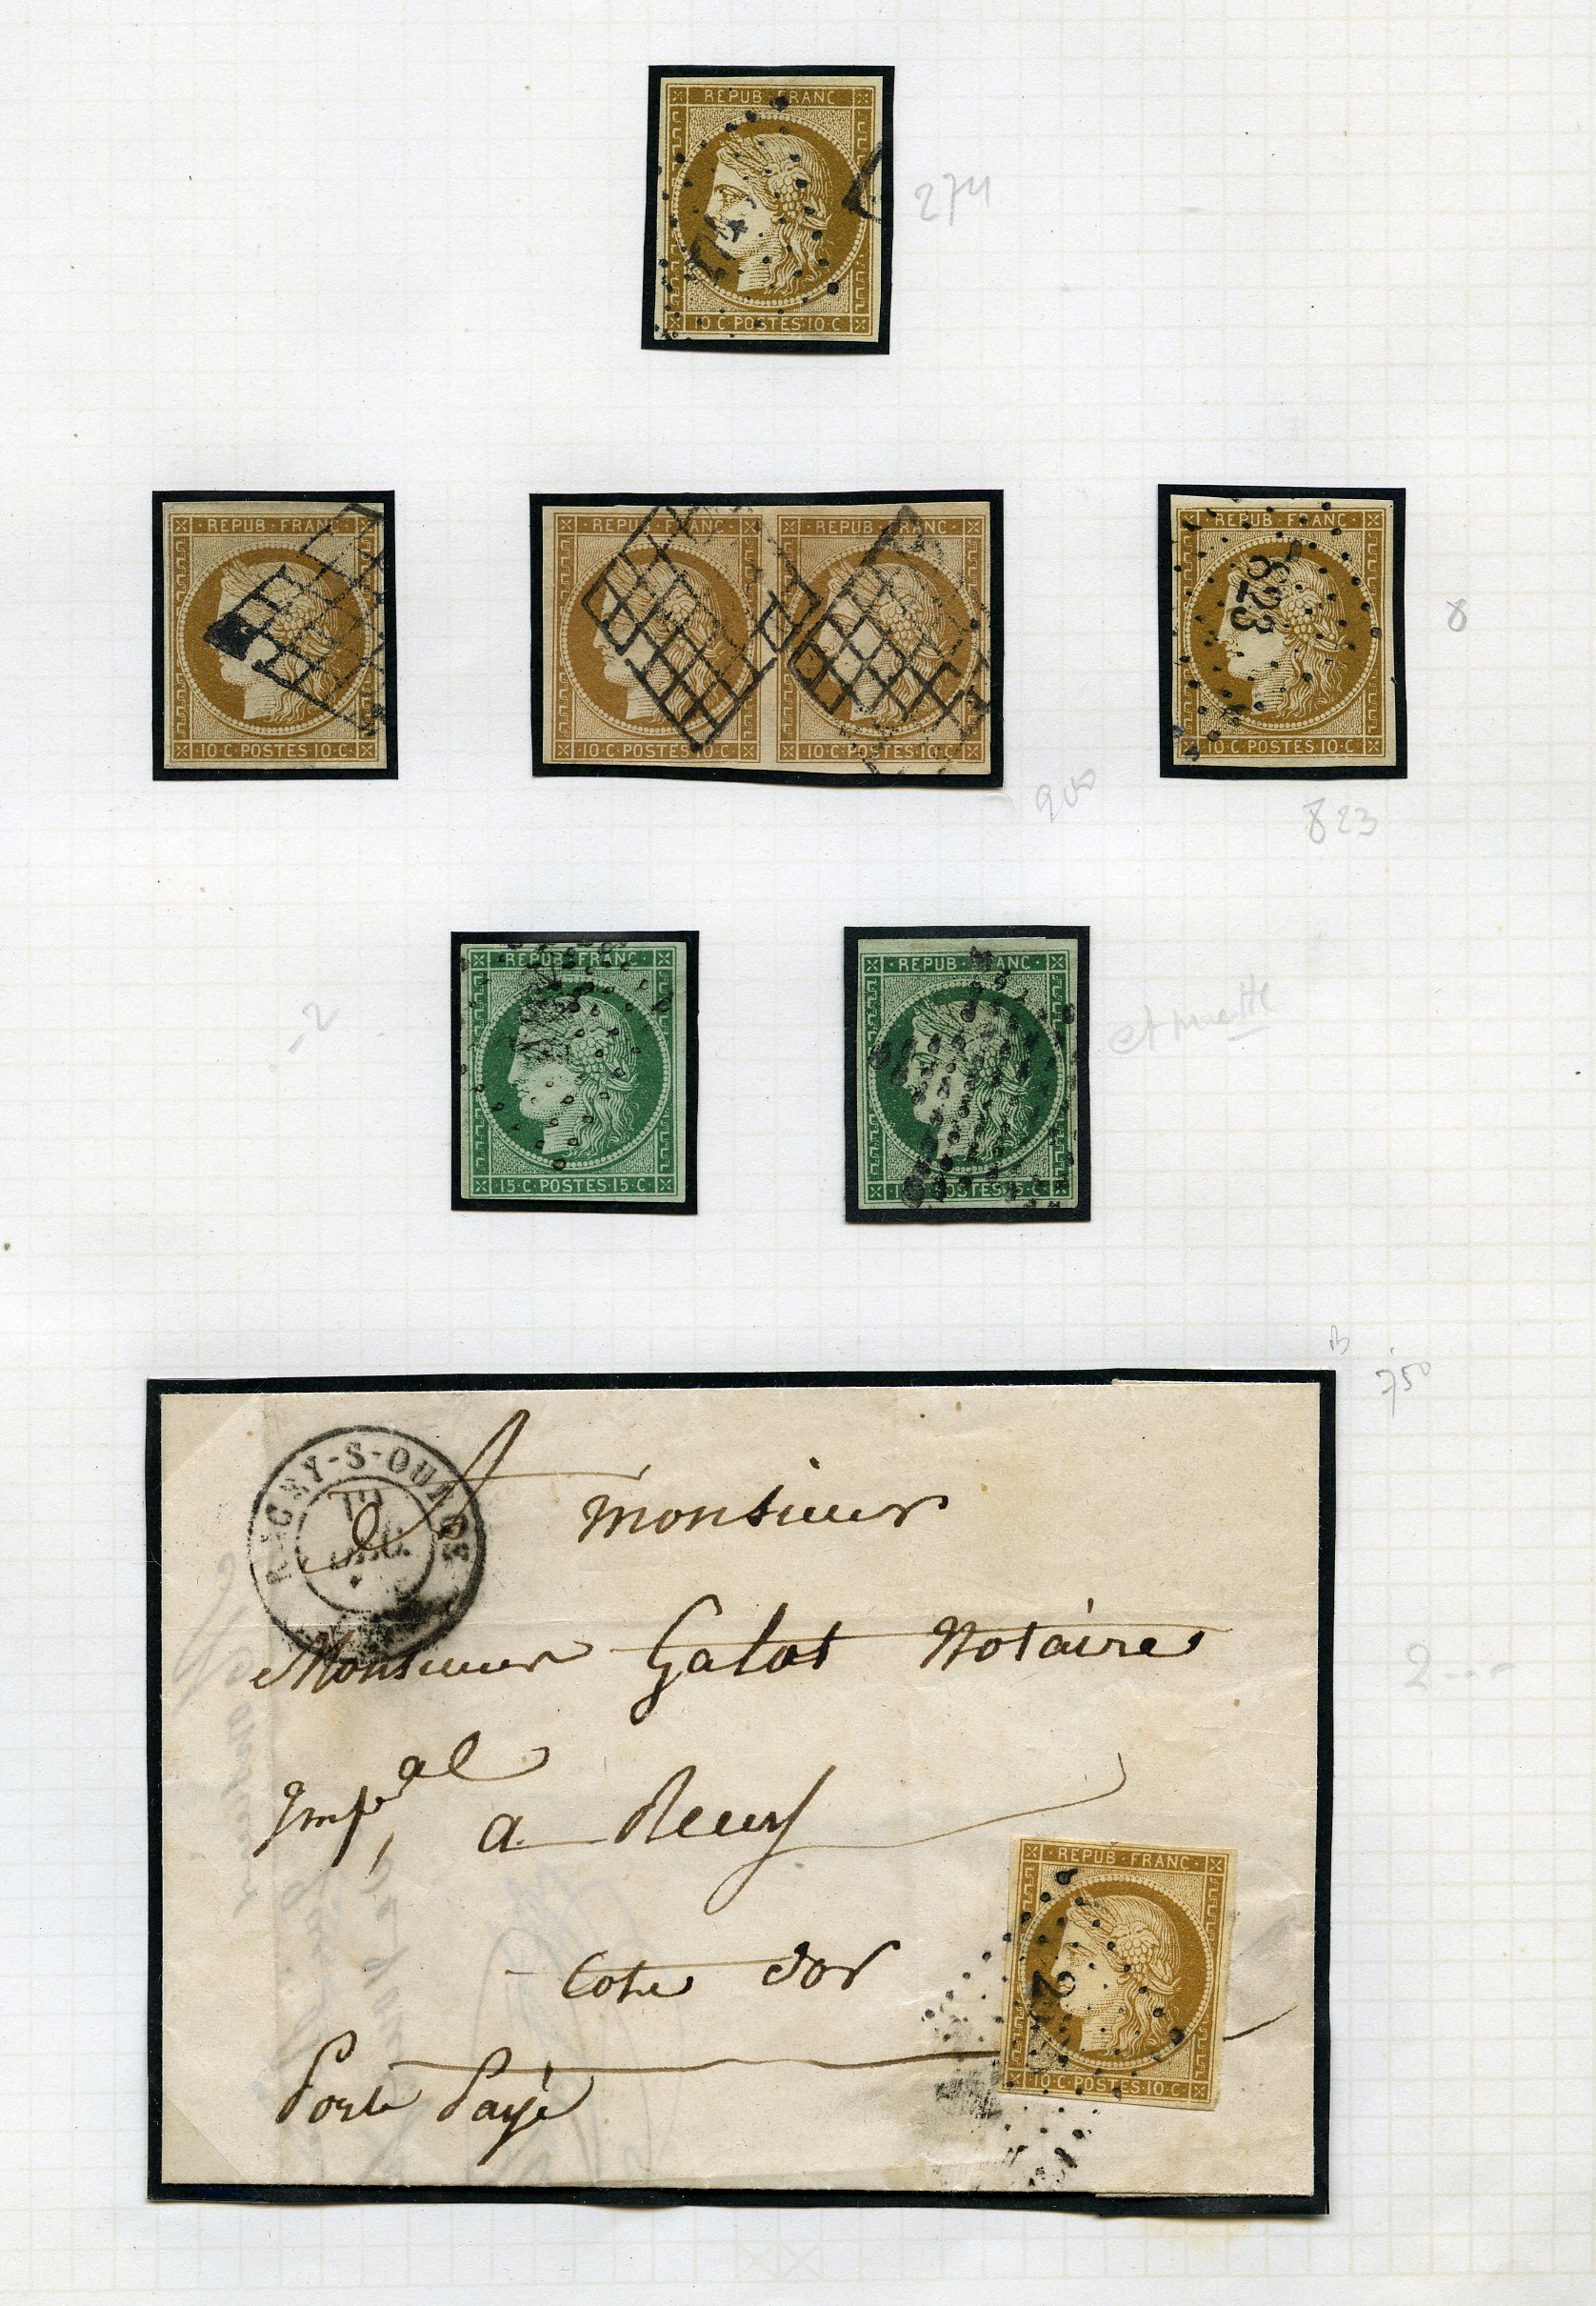 REPUB·FRANC
10·C·POSTES·10·C
274
·REPUB·FRANC·
·10·C·POSTES·10·C·
·REPUB·FRANC·
·10·C·POSTES·10·C·
·REPUB·FRANC·
·10·C·POSTES·10·C·
900
·REPUB·FRANC·
823
·10·C·POSTES·10·C·
8
823
·REPUB·FRANC·
·15·C·POSTES·15·C·
2
·REPUB·FRANC·
POSTES
750
CEY-S-OUR
A monsieur
Monsieur Galot Notaire
Imp.al a
Cote d'or
Porte Payé
·REPUB·FRANC·
2
·10·C·POSTES·10·C·
2